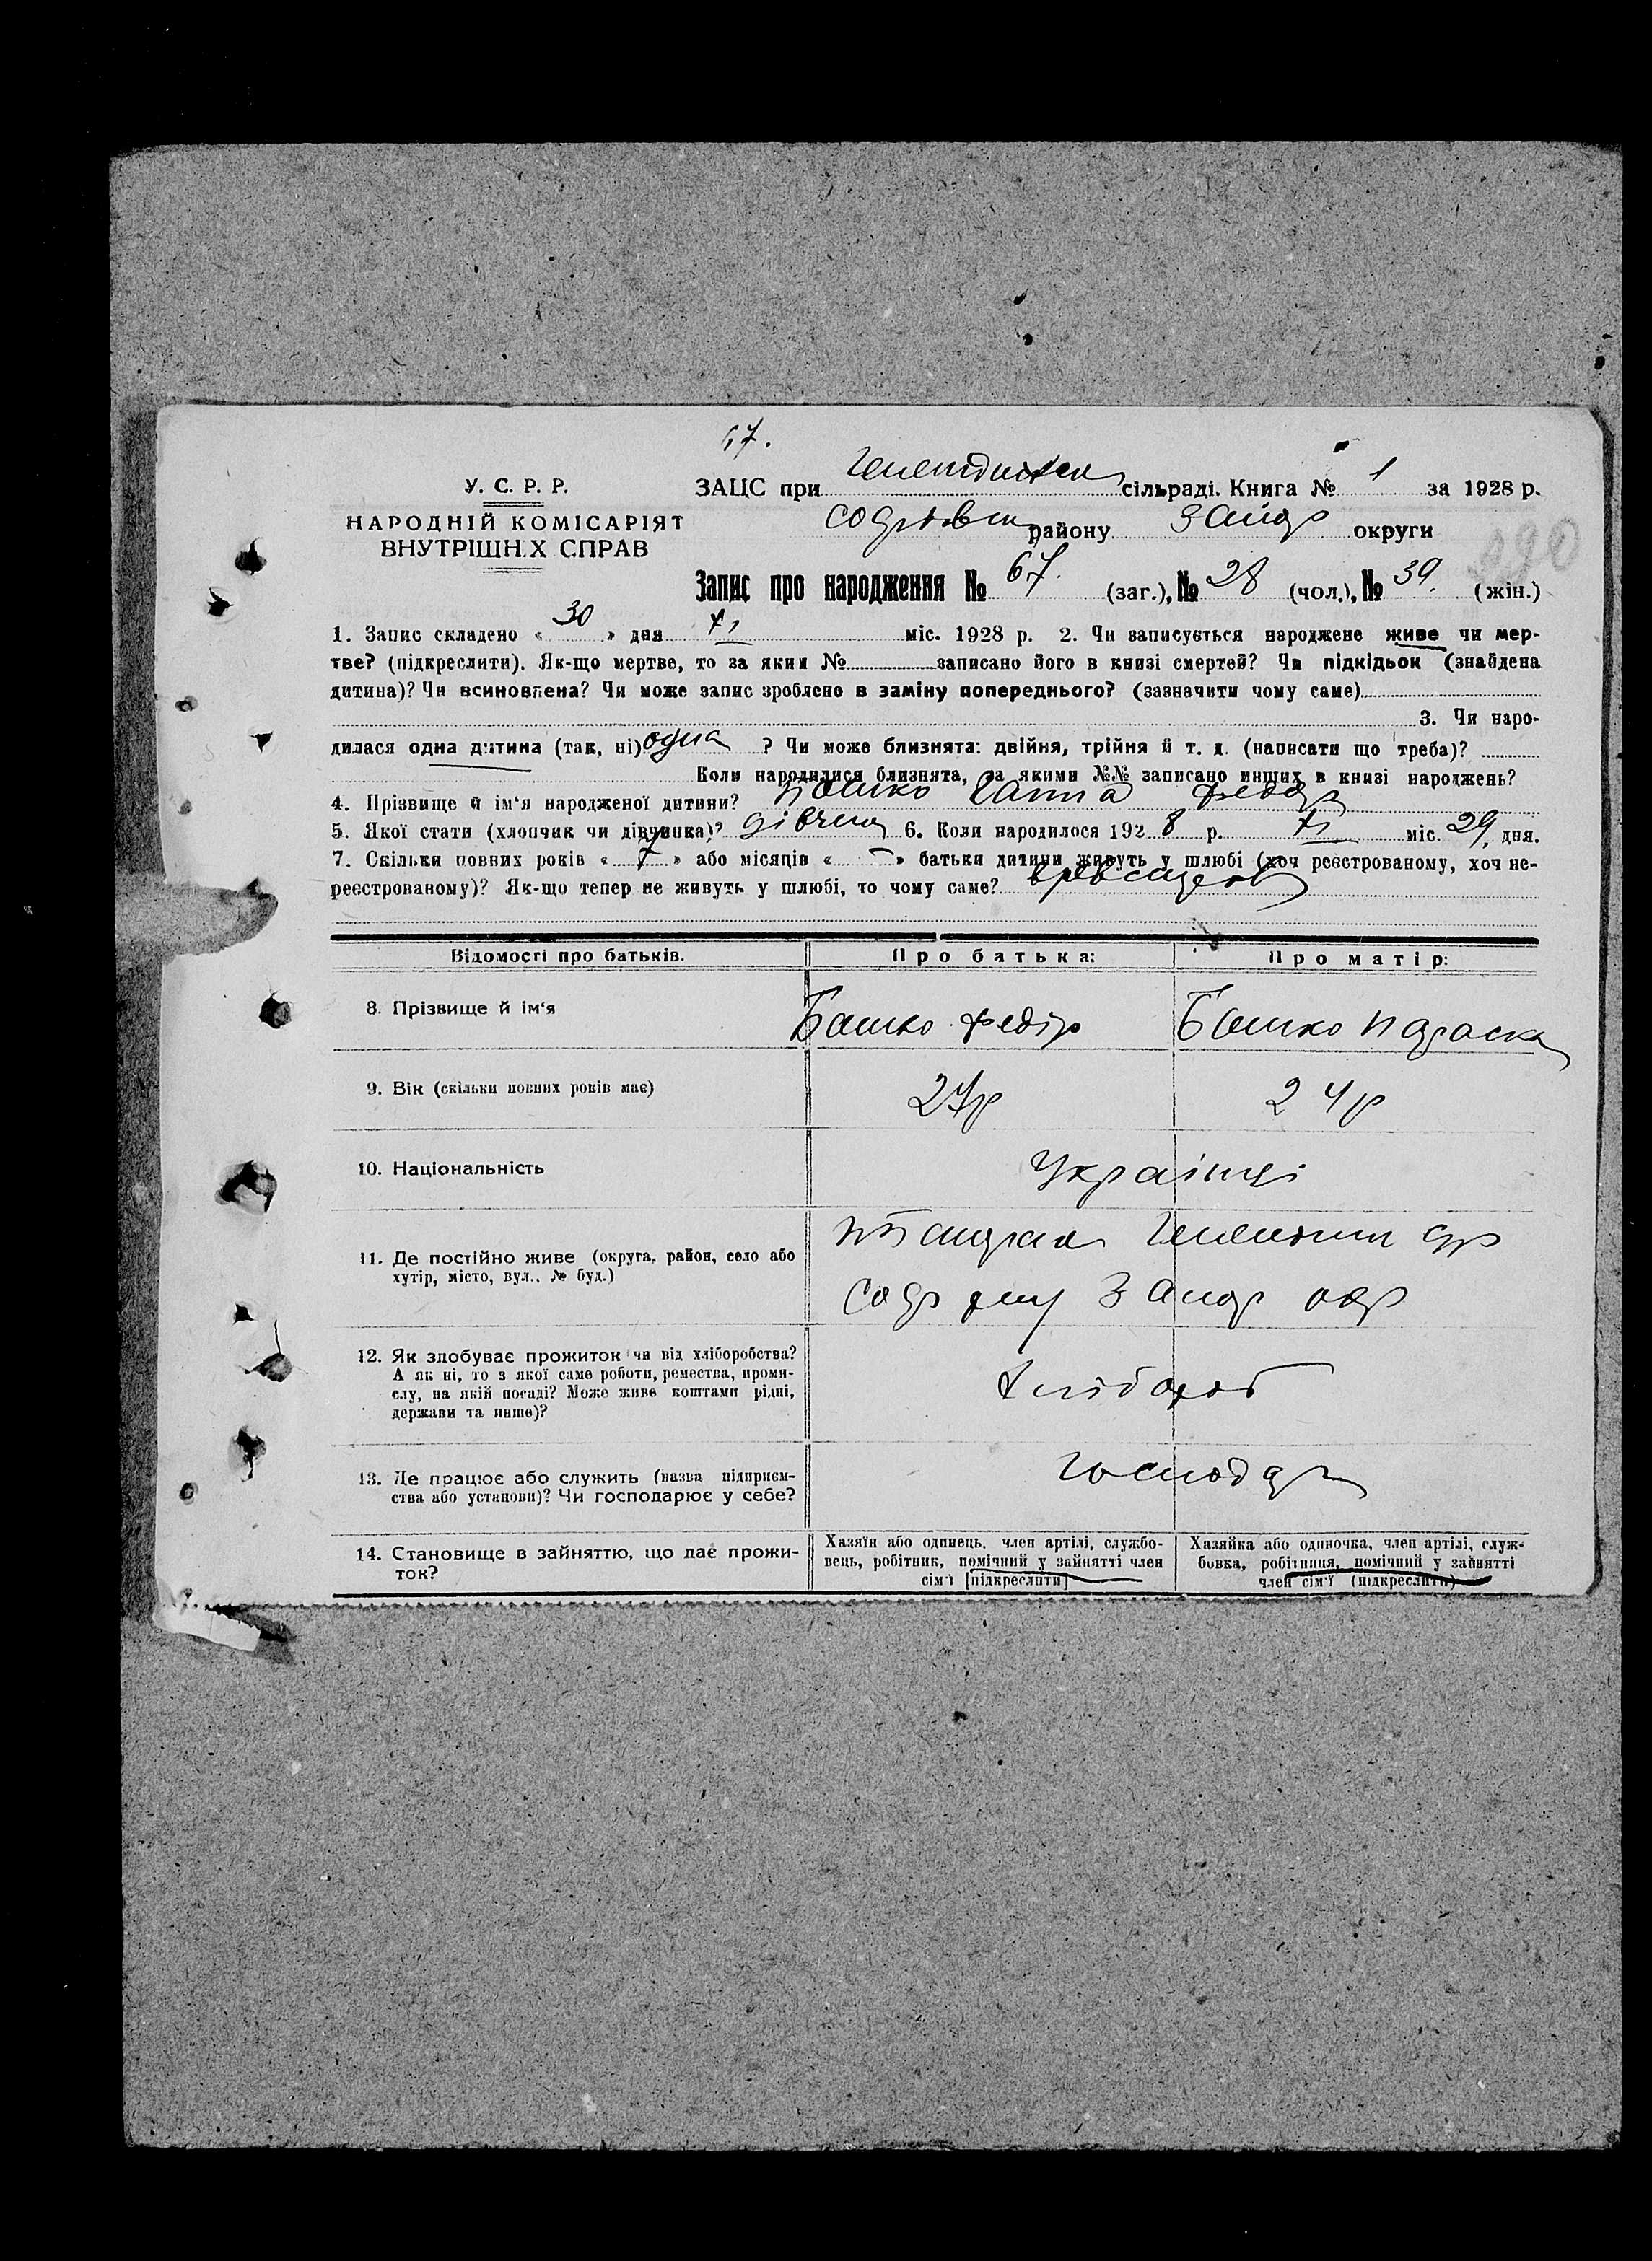 67.
У. С. Р. Р.
НАРОДНІЙ КОМІСАРІЯТ
ВНУТРІШН.Х СПРАВ
ЗАЦС при сільраді. Книга № 1 за 1928 р.
району округи
290
Запис про народження № 67. (заг.), № 28 (чол.), № 39. (жін.)
1. Запис складено « 30 » дня XI міс. 1928 р. 2. Чи записується народжене живе чи мер-
тве? (підкреслити). Як-що мертве, то за яким № записано його в книзі смертей? Чи підкідьок (знайдена
дитина)? Чи всиновлена? Чи може запис зроблено в заміну попереднього? (зазначити чому саме)
3. Чи наро-
дилася одна дитина (так, ні) одна ? Чи може близнята: двійня, трійня й т. д. (написати що треба)?
Коли народилися близнята, за якими №№ записано инших в книзі народжень?
4. Прізвище й ім‘я народженої дитини? Башко Ганна Федор
5. Якої стати (хлопчик чи дівчинка)? дівчина 6. Коли народилося 1928 р. XI міс. 29, дня.
7. Скільки повних років « 7 » або місяців « – » батьки дитини живуть у шлюбі (хоч реєстрованому, хоч не-
реєстрованому)? Як-що тепер не живуть у шлюбі, то чому саме?
Відомості про батьків. Про батька: Про матір:
8. Прізвище й ім‘я Башко Федір Башко Параска
9. Вік (скільки повних років має) 27р 24р
10. Національність Українці
11. Де постійно живе (округа, район, село або
хутір, місто, вул., № буд.)
12. Як здобуває прожиток чи від хліборобства?
А як ні, то з якої саме роботи, ремества, проми-
слу, на якій посаді? Може живе коштами рідні,
держави та инше)?
Хлібороб
13. Де працює або служить (назва підприєм-
ства або установи)? Чи господарює у себе?
14. Становище в зайняттю, що дає прожи-
ток?
Хазяїн або одинець, член артілі, службо-
вець, робітник, помічний у зайнятті член
сім‘ї [підкреслити]
Хазяйка або одиночка, член артілі, служ-
бовка, робітниця, помічний у зайнятті
член сім‘ї (підкреслити)